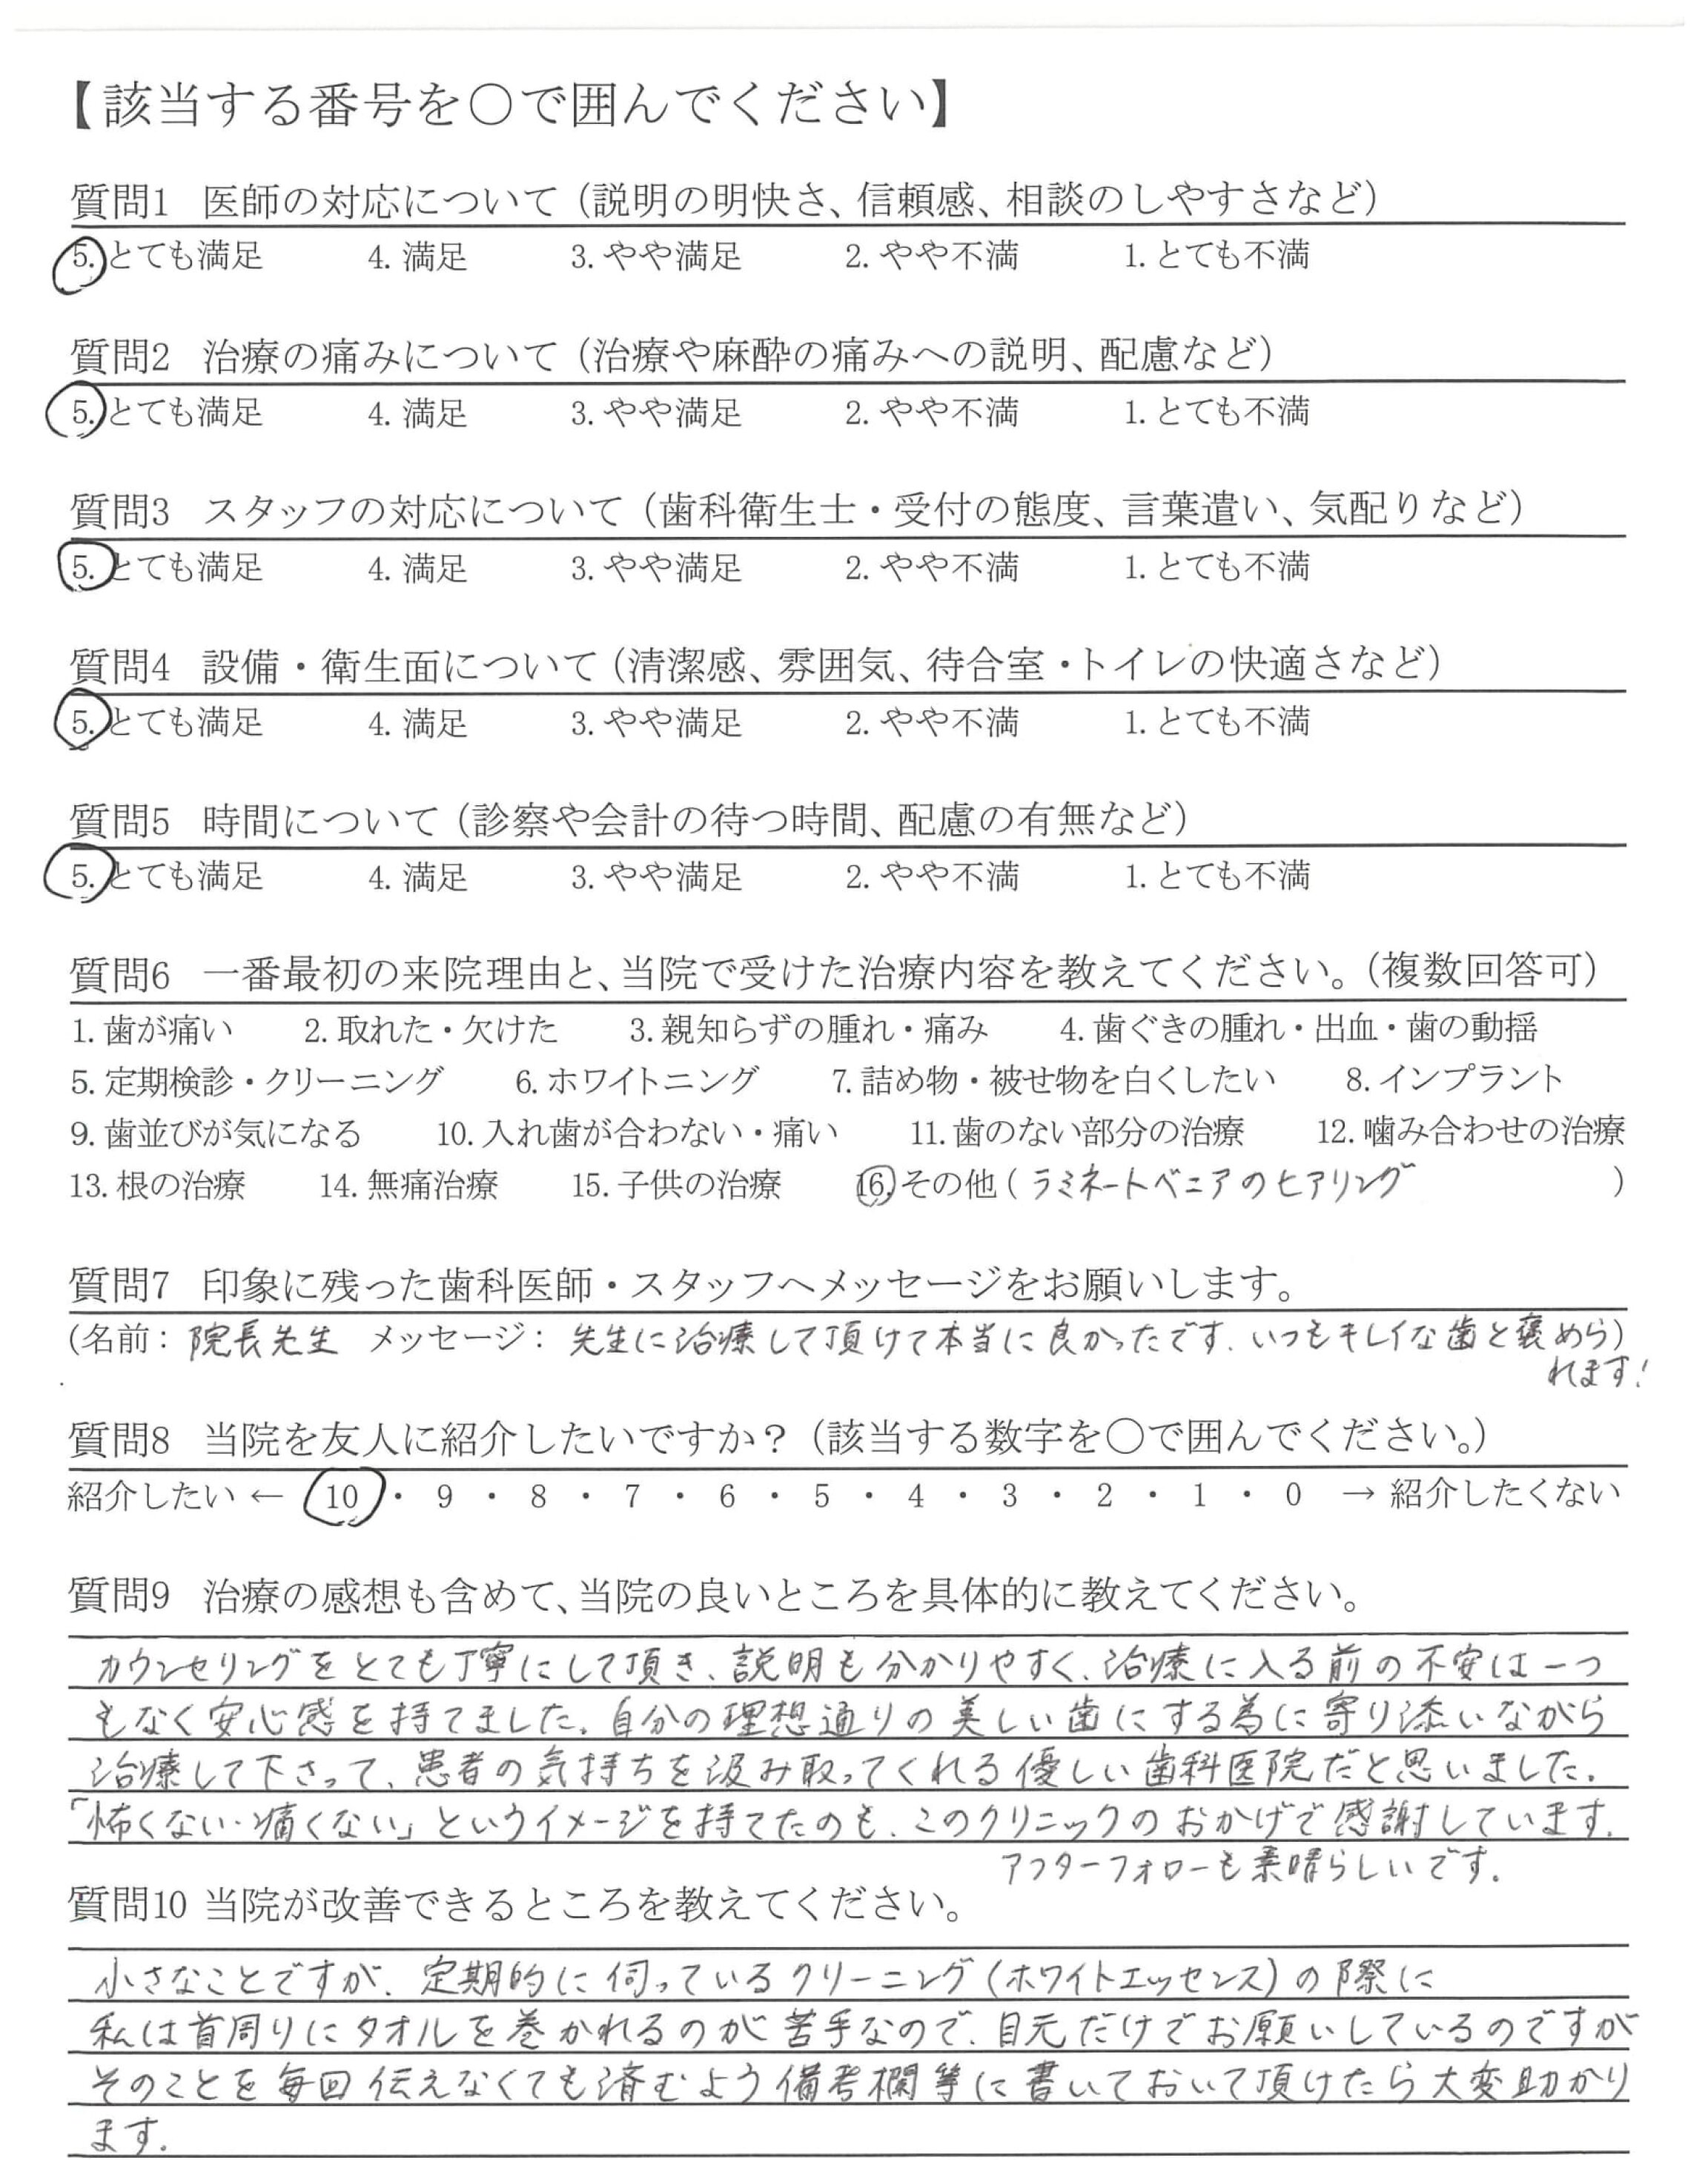 【該当する番号を○で囲んでください】
質問1 医師の対応について（説明の明快さ、信頼感、相談のしやすさなど）
5. とても満足 4. 満足 3. やや満足 2. やや不満 1. とても不満
質問2 治療の痛みについて（治療や麻酔の痛みへの説明、配慮など）
5. とても満足 4. 満足 3. やや満足 2. やや不満 1. とても不満
質問3 スタッフの対応について（歯科衛生士・受付の態度、言葉遣い、気配りなど）
5. とても満足 4. 満足 3. やや満足 2. やや不満 1. とても不満
質問4 設備・衛生面について（清潔感、雰囲気、待合室・トイレの快適さなど）
5. とても満足 4. 満足 3. やや満足 2. やや不満 1. とても不満
質問5 時間について（診察や会計の待つ時間、配慮の有無など）
5. とても満足 4. 満足 3. やや満足 2. やや不満 1. とても不満
質問6 一番最初の来院理由と、当院で受けた治療内容を教えてください。（複数回答可）
1. 歯が痛い 2. 取れた・欠けた 3. 親知らずの腫れ・痛み 4. 歯ぐきの腫れ・出血・歯の動揺
5. 定期検診・クリーニング 6. ホワイトニング 7. 詰め物・被せ物を白くしたい 8. インプラント
9. 歯並びが気になる 10. 入れ歯が合わない・痛い 11. 歯のない部分の治療 12. 噛み合わせの治療
13. 根の治療 14. 無痛治療 15. 子供の治療 16. その他（ラミネートベニアのヒアリング）
質問7 印象に残った歯科医師・スタッフへメッセージをお願いします。
（名前：院長先生 メッセージ：先生に治療して頂けて本当に良かったです。いつもキレイな歯と褒めら）
れます!
質問8 当院を友人に紹介したいですか？（該当する数字を○で囲んでください。）
紹介したい ← 10 ・ 9 ・ 8 ・ 7 ・ 6 ・ 5 ・ 4 ・ 3 ・ 2 ・ 1 ・ 0 → 紹介したくない
質問9 治療の感想も含めて、当院の良いところを具体的に教えてください。
カウンセリングをとても丁寧にして頂き、説明も分かりやすく、治療に入る前の不安は一つ
もなく安心感を持てました。自分の理想通りの美しい歯にする為に寄り添いながら
治療して下さって、患者の気持ちを汲み取ってくれる優しい歯科医院だと思いました。
「怖くない・痛くない」というイメージを持てたのも、このクリニックのおかげで感謝しています。
アフターフォローも素晴らしいです。
質問10 当院が改善できるところを教えてください。
小さなことですが、定期的に伺っているクリーニング（ホワイトエッセンス）の際に
私は首周りにタオルを巻かれるのが苦手なので、目元だけでお願いしているのですが
そのことを毎回伝えなくても済むよう備考欄等に書いておいて頂けたら大変助かり
ます。